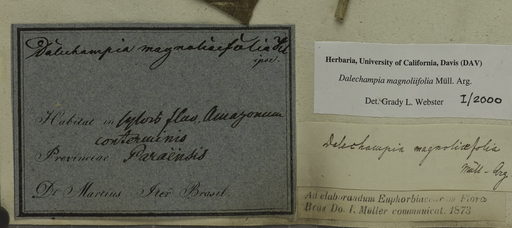 Dalechampia magnoliaefolia
ipse.
Habitat in sylvis fluv. Amazonum
conterminis
Provinciae Paraënsis
Dr. Martius Iter Brasil.
Herbaria, University of California, Davis (DAV)
Dalechampia magnoliifolia Müll. Arg.
Det. Grady L. Webster I/2000
Dalechampia magnoliaefolia
Müll-Arg
Ad elaborandum Euphorbiaceas in Flora
Bras Do. I. Müller communicat. 1873